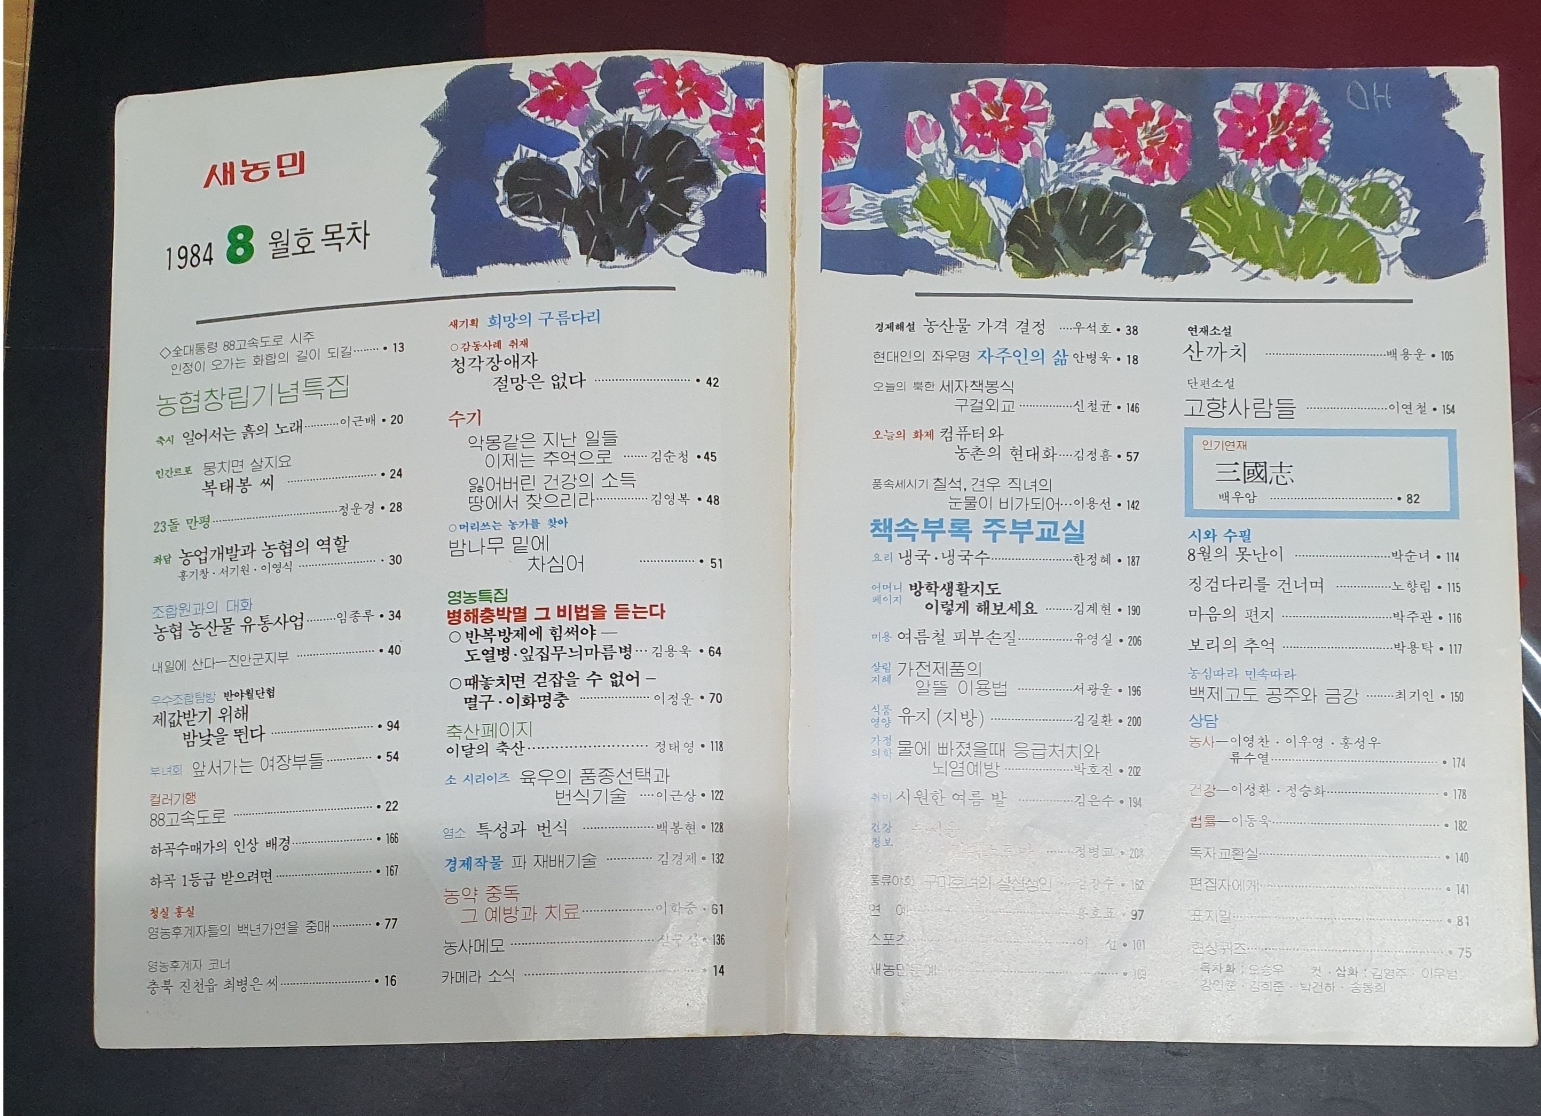 새농민
1984 8 월호 목차
◇全대통령 88고속도로 시주
인정이 오가는 화합의 길이 되길········• 13
농협창립기념특집
축시 일어서는 흙의 노래··········이근배 • 20
인간르포 뭉치면 살지요
복태봉 씨 ··························• 24
23돌 만평······························정운경 • 28
좌담 농업개발과 농협의 역할
홍기창 · 서기원 · 이영식 ····················• 30
조합원과의 대화
농협 농산물 유통사업········임종루 • 34
내일에 산다—진안군지부 ·····················• 40
우수조합탐방 반야월단협
제값받기 위해
밤낮을 뛴다 ·······················• 94
부녀회 앞서가는 여장부들··············• 54
컬러기행
88고속도로 ······························• 22
하곡수매가의 인상 배경····················• 166
하곡 1등급 받으려면·······················• 167
청실 홍실
영농후계자들의 백년가연을 중매···········• 77
영농후계자 코너
충북 진천읍 최병은 씨·······················• 16
새기획 희망의 구름다리
○ 감동사례 취재
청각장애자
절망은 없다 ························• 42
수기
악몽같은 지난 일들
이제는 추억으로 ······김순청 • 45
잃어버린 건강의 소득
땅에서 찾으리라·············김영복 • 48
○ 머리쓰는 농가를 찾아
밤나무 밑에
차심어 ·················• 51
영농특집
병해충박멸 그 비법을 듣는다
○ 반복방제에 힘써야 —
도열병·잎집무늬마름병···김용욱 • 64
○ 때놓치면 걷잡을 수 없어 —
멸구 · 이화명충 ·················이정운 • 70
축산페이지
이달의 축산························정태영 • 118
소 시리이즈 육우의 품종선택과
번식기술 ····이근상 • 122
염소 특성과 번식 ·················백봉현 • 128
경제작물 파 재배기술 ···········김경제 • 132
농약 중독
그 예방과 치료·················이학중 • 61
농사메모 ······························• 136
카메라 소식 ······························• 14
경제해설 농산물 가격 결정 ····우석호 • 38
현대인의 좌우명 자주인의 삶 안병욱 • 18
오늘의 북한 세자책봉식
구걸외교·············신철균 • 146
오늘의 화제 컴퓨터와
농촌의 현대화····김정흠 • 57
풍속세시기 칠석, 견우 직녀의
눈물이 비가되어···이용선 • 142
책속부록 주부교실
요리 냉국 · 냉국수·················한정혜 • 187
어머니 페이지 방학생활지도
이렇게 해보세요 ········김계현 • 190
미용 여름철 피부손질··············유영실 • 206
살림 지혜 가전제품의
알뜰 이용법 ············서광운 • 196
식품 영양 유지 (지방) ·····················김길환 • 200
가정 의학 물에 빠졌을때 응급처치와
뇌염예방 ·············박호진 • 202
취미 시원한 여름 발 ············김은수 • 194
건강 정보 정병교 • 208
풍류야화 구미호녀의 살신성인 ····김장수 • 162
연 예 ······························ • 97
스포츠 ······························ • 101
연재소설
산까치 ·······················백용운 • 105
단편소설
고향사람들 ···············이연철 • 154
인기연재
三國志
백우암 ·······················• 82
시와 수필
8월의 못난이 ···················박순녀 • 114
징검다리를 건너며 ···········노향림 • 115
마음의 편지 ····················박주관 • 116
보리의 추억 ····················박용탁 • 117
농심따라 민속따라
백제고도 공주와 금강 ······최기인 • 150
상담
농사—이영찬 · 이우영 · 홍성우
류수열·························• 174
건강—이성환 · 정승화······················• 178
법률—이동욱······························• 182
독자교환실······························• 140
편집자에게······························• 141
표지말······························• 81
현상퀴즈······························• 75
목차화 : 오승우 컷 · 삽화 : 김영주 · 이우범